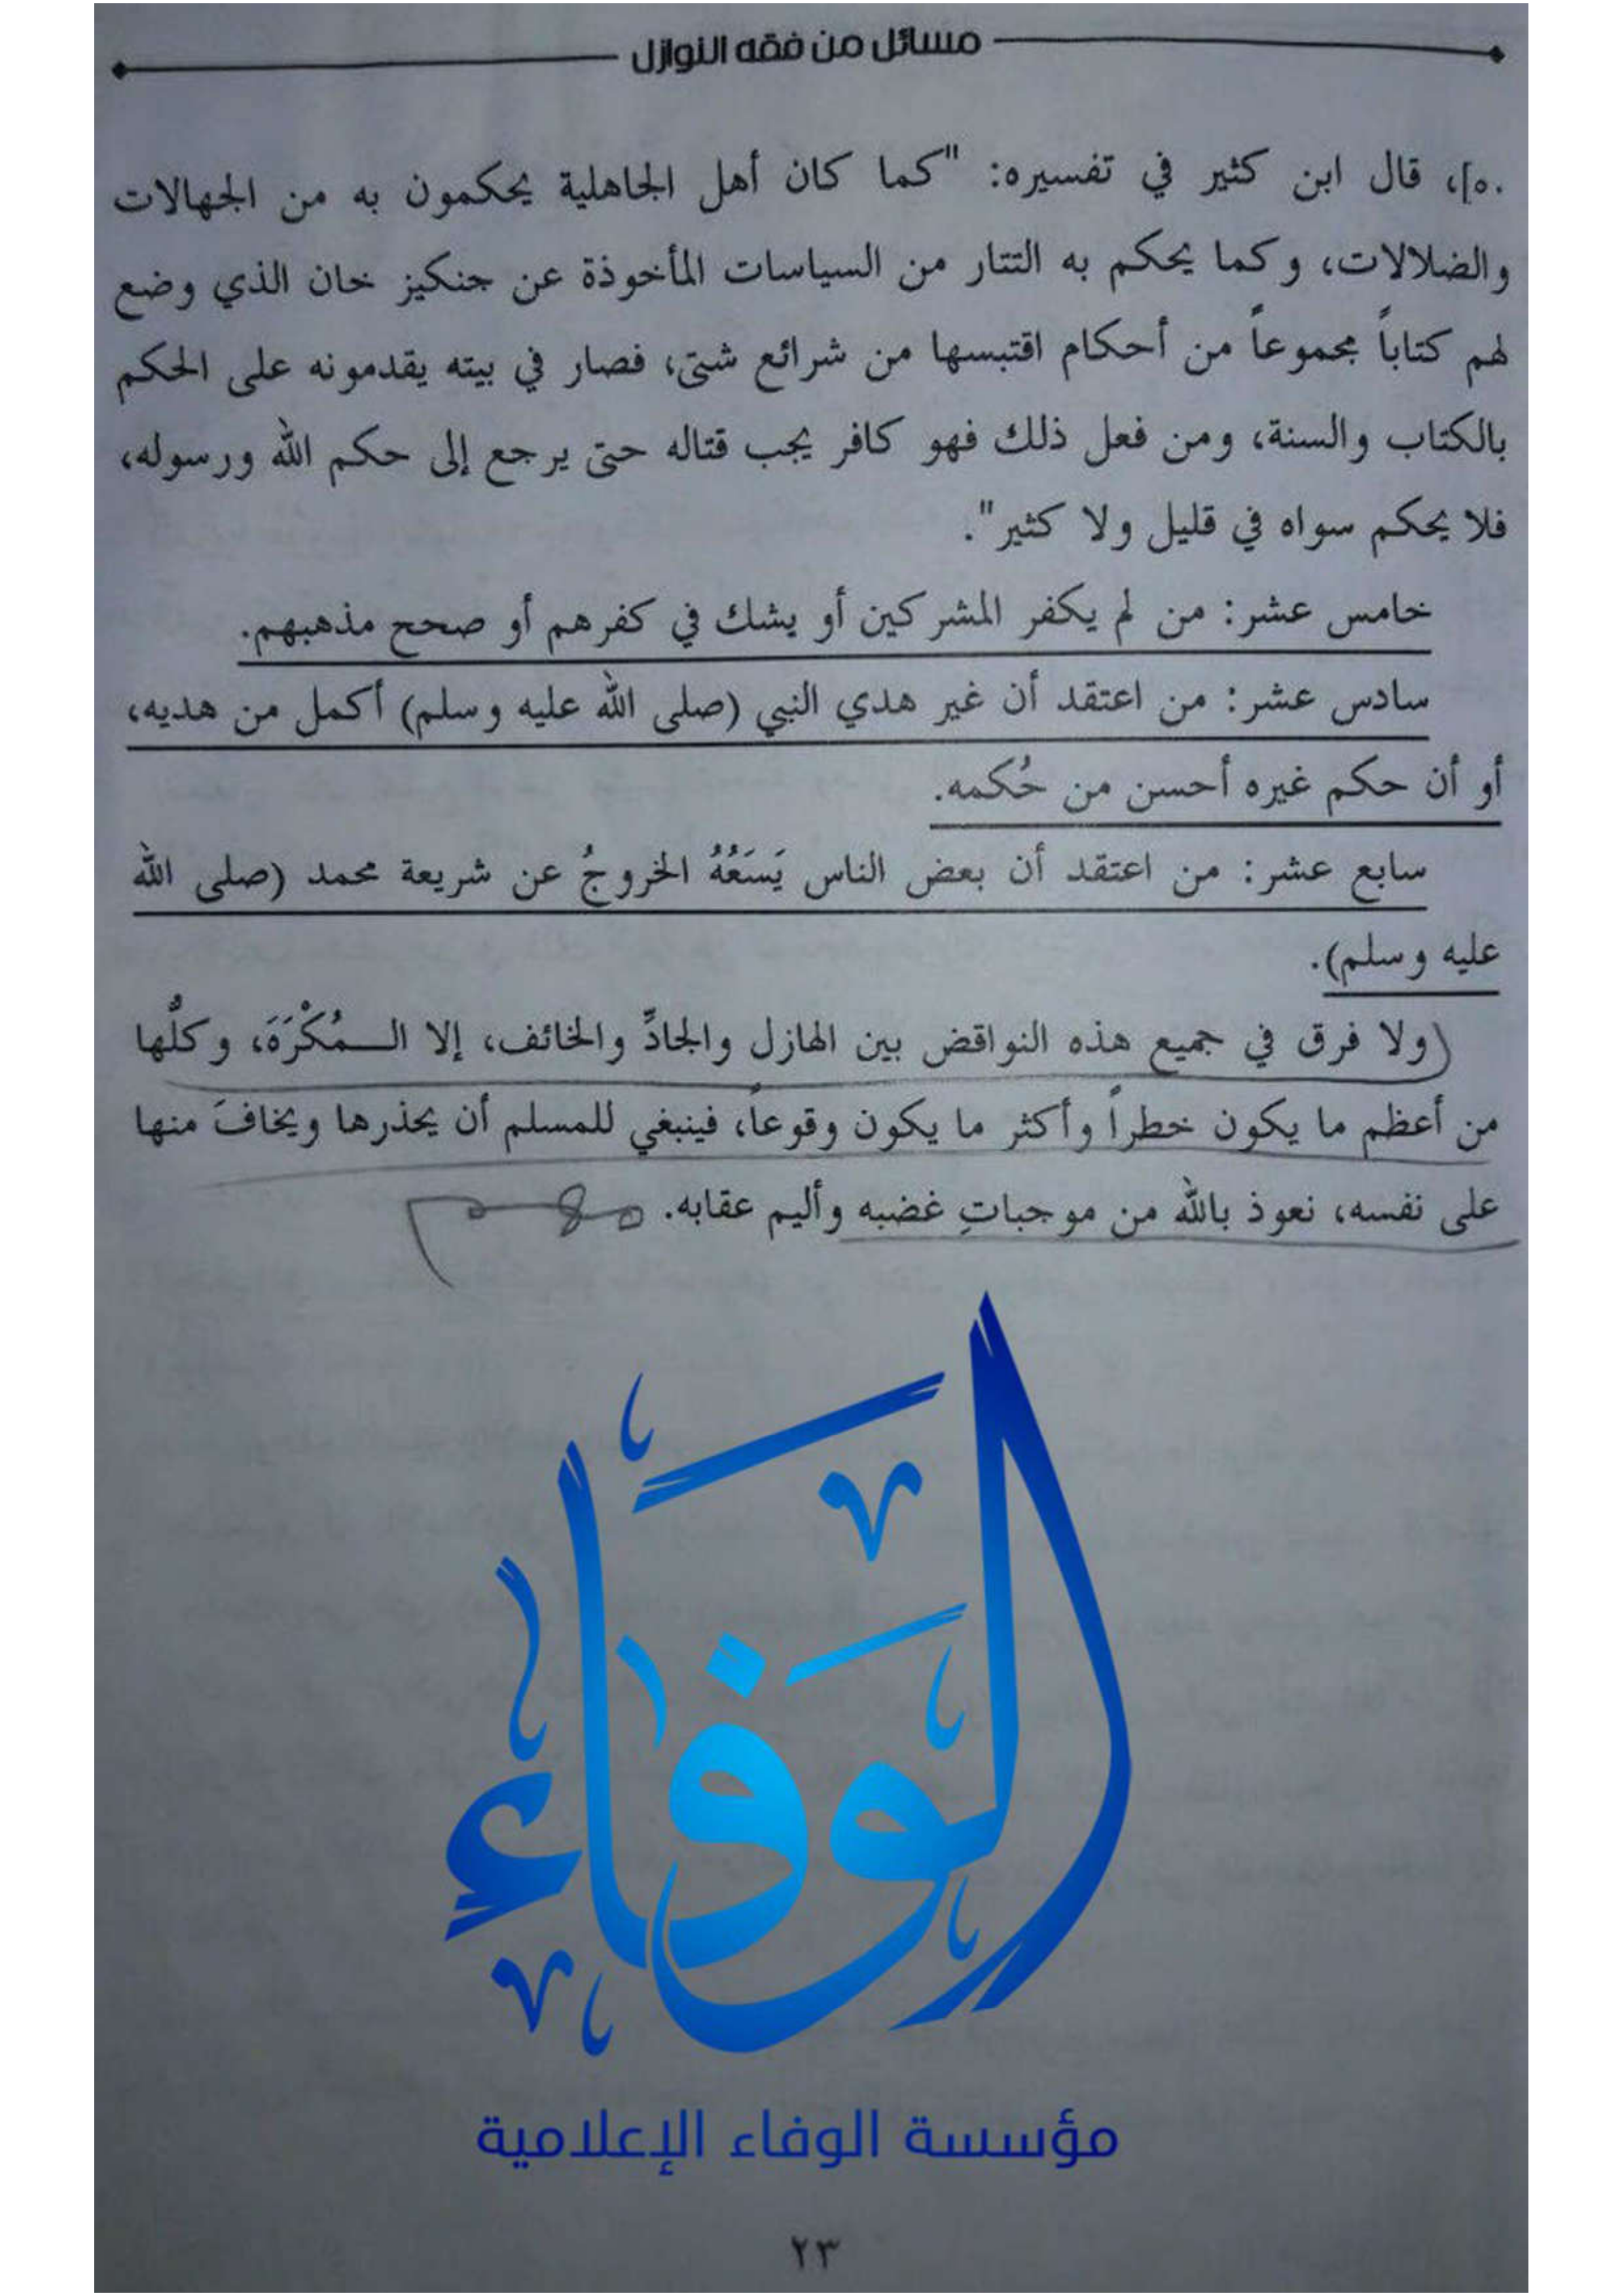 مسائل من فقه النوازل
٥٠]، قال ابن كثير في تفسيره: "كما كان أهل الجاهلية يحكمون به من الجهالات
والضلالات، وكما يحكم به التتار من السياسات المأخوذة عن جنكيز خان الذي وضع
لهم كتاباً مجموعاً من أحكام اقتبسها من شرائع شتى، فصار في بيته يقدمونه على الحكم
بالكتاب والسنة، ومن فعل ذلك فهو كافر يجب قتاله حتى يرجع إلى حكم الله ورسوله،
فلا يحكم سواه في قليل ولا كثير".
خامس عشر: من لم يكفر المشركين أو يشك في كفرهم أو صحح مذهبهم.
سادس عشر: من اعتقد أن غير هدي النبي (صلى الله عليه وسلم) أكمل من هديه،
أو أن حكم غيره أحسن من حُكمه.
سابع عشر: من اعتقد أن بعض الناس يَسَعُهُ الخروجُ عن شريعة محمد (صلى الله
عليه وسلم).
(ولا فرق في جميع هذه النواقض بين الهازل والجادِّ والخائف، إلا الـمُكْرَهَ، وكلُّها
من أعظم ما يكون خطراً وأكثر ما يكون وقوعاً، فينبغي للمسلم أن يحذرها ويخافَ منها
على نفسه، نعوذ بالله من موجباتِ غضبه وأليم عقابه. مهم
الوفاء
مؤسسة الوفاء الإعلامية
٢٣